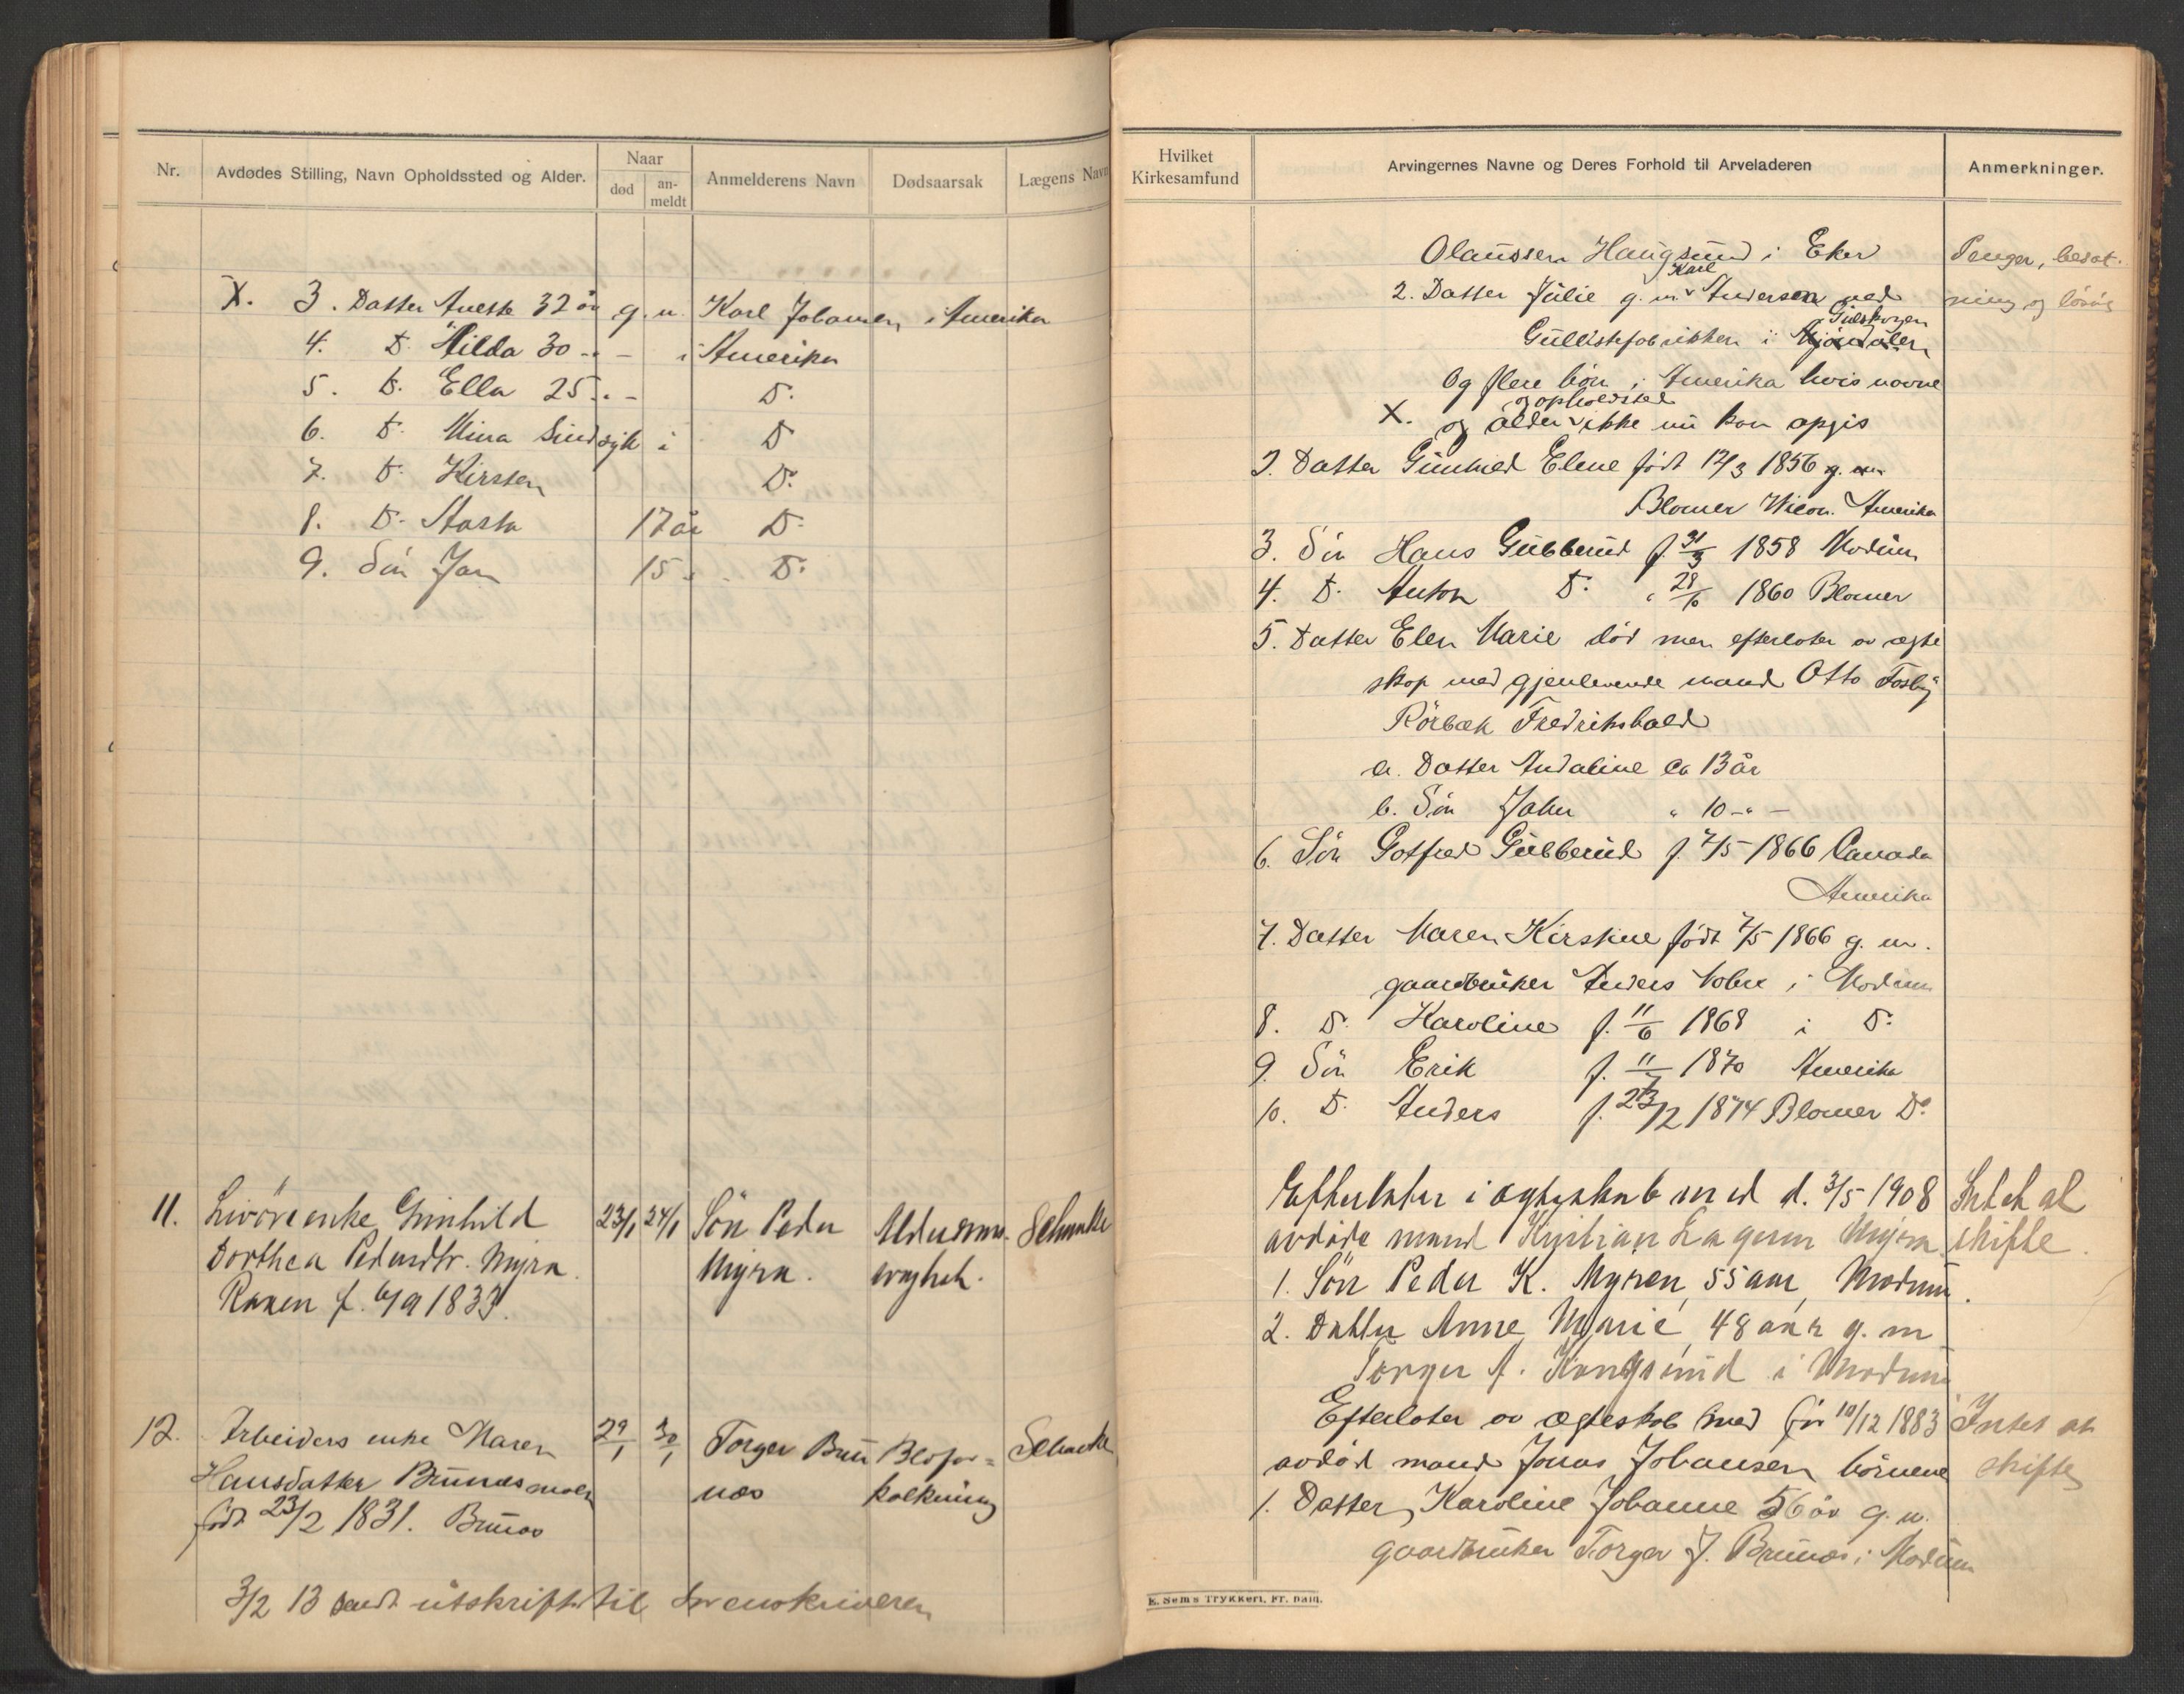 Nr.
Avdødes Stilling, Navn Opholdssted og Alder.
Naar
død
an-
meldt
Anmelderens Navn
Dødsaarsak
Lægens Navn
X. 3. Datter Anette 32 år g. m. Karl Johansen i Amerika
4. D. Hilda 30 - " - i Amerika
5. D. Ella 25 - " - D.
6. D. Mina Sindsyk i D
7. D. Kirsten D.
8. D. Aasta 17 år D.
9. Sön Jan 15 " - D.
11. Livöreenke Gunhild 23/1 24/1 Sön Peder Alderdoms- Schancke
Dorthea Pedersdtr. Myra Myra. svaghet.
f. 6/9 1833.
12. Arbeiders enke Maren 29/1 30/1 Torger Bru Blofor= Schancke
Hansdatter Brunæsmoen næs kalkning
født 23/2 1831. Brunæs
3/2 13 sendt utskrift til Sorenskriveren
Hvilket
Kirkesamfund
Arvingernes Navne og Deres Forhold til Arveladeren
Anmerkninger.
Olaussen Haugsund i Eker Penger, besæt-
Karl
2. Datter Julie g. m. Andersen ved ning og løsøre
Gulskogen
Gullistefabrikken i Mjøndalen
Og flere börn i Amerika hvis navne
og opholdsted
X. og alder ikke nu kan opgis
2. Datter Gunhild Elene født 12/3 1856 g. m.
Blomer Wicon. Amerika
3. Sön Hans Gubberud f. 31/3 1858 Modum
4. D. Anton D. " 28/10 1860 Blomer
5. Datter Elen Marie död men efterlater av ægte
skap med gjenlevende mand Otto Fosby
Rörbæk Fredrikshald
a. Datter Andaline ca 13 år
b. Sön John " 10 - " -
6. Sön Gotfred Gubberud f. 7/5 1866 Canada
Amerika
7. Datter Maren Kirstine født 7/5 1866 g. m.
gaardbruker Anders i Modum
8. D. Karoline f. 11/6 1868 i D.
9. Sön Erik f. 11/7 1870 Amerika
10. D. Anders f. 23/12 1874 Blomer Do
Efterlater i ægteskab med d. 3/5 1908 Intet at
avdöde mand Kristian Lagesen Myra skifte.
1. Sön Peder K. Myren, 55 aar, Modum.
2. Datter Anne Marie, 48 aar g. m
Torger A. Kongsrud i Modum
Efterlater av ægteskab med før 10/12 1883 Intet at
avdöd mand Jonas Johansen börnene skifte
1. Datter Karoline Johanne 56 år g. m.
gaardbruker Torger J. Brunæs i Modum
E. Sems Trykkeri, Fr. hald.